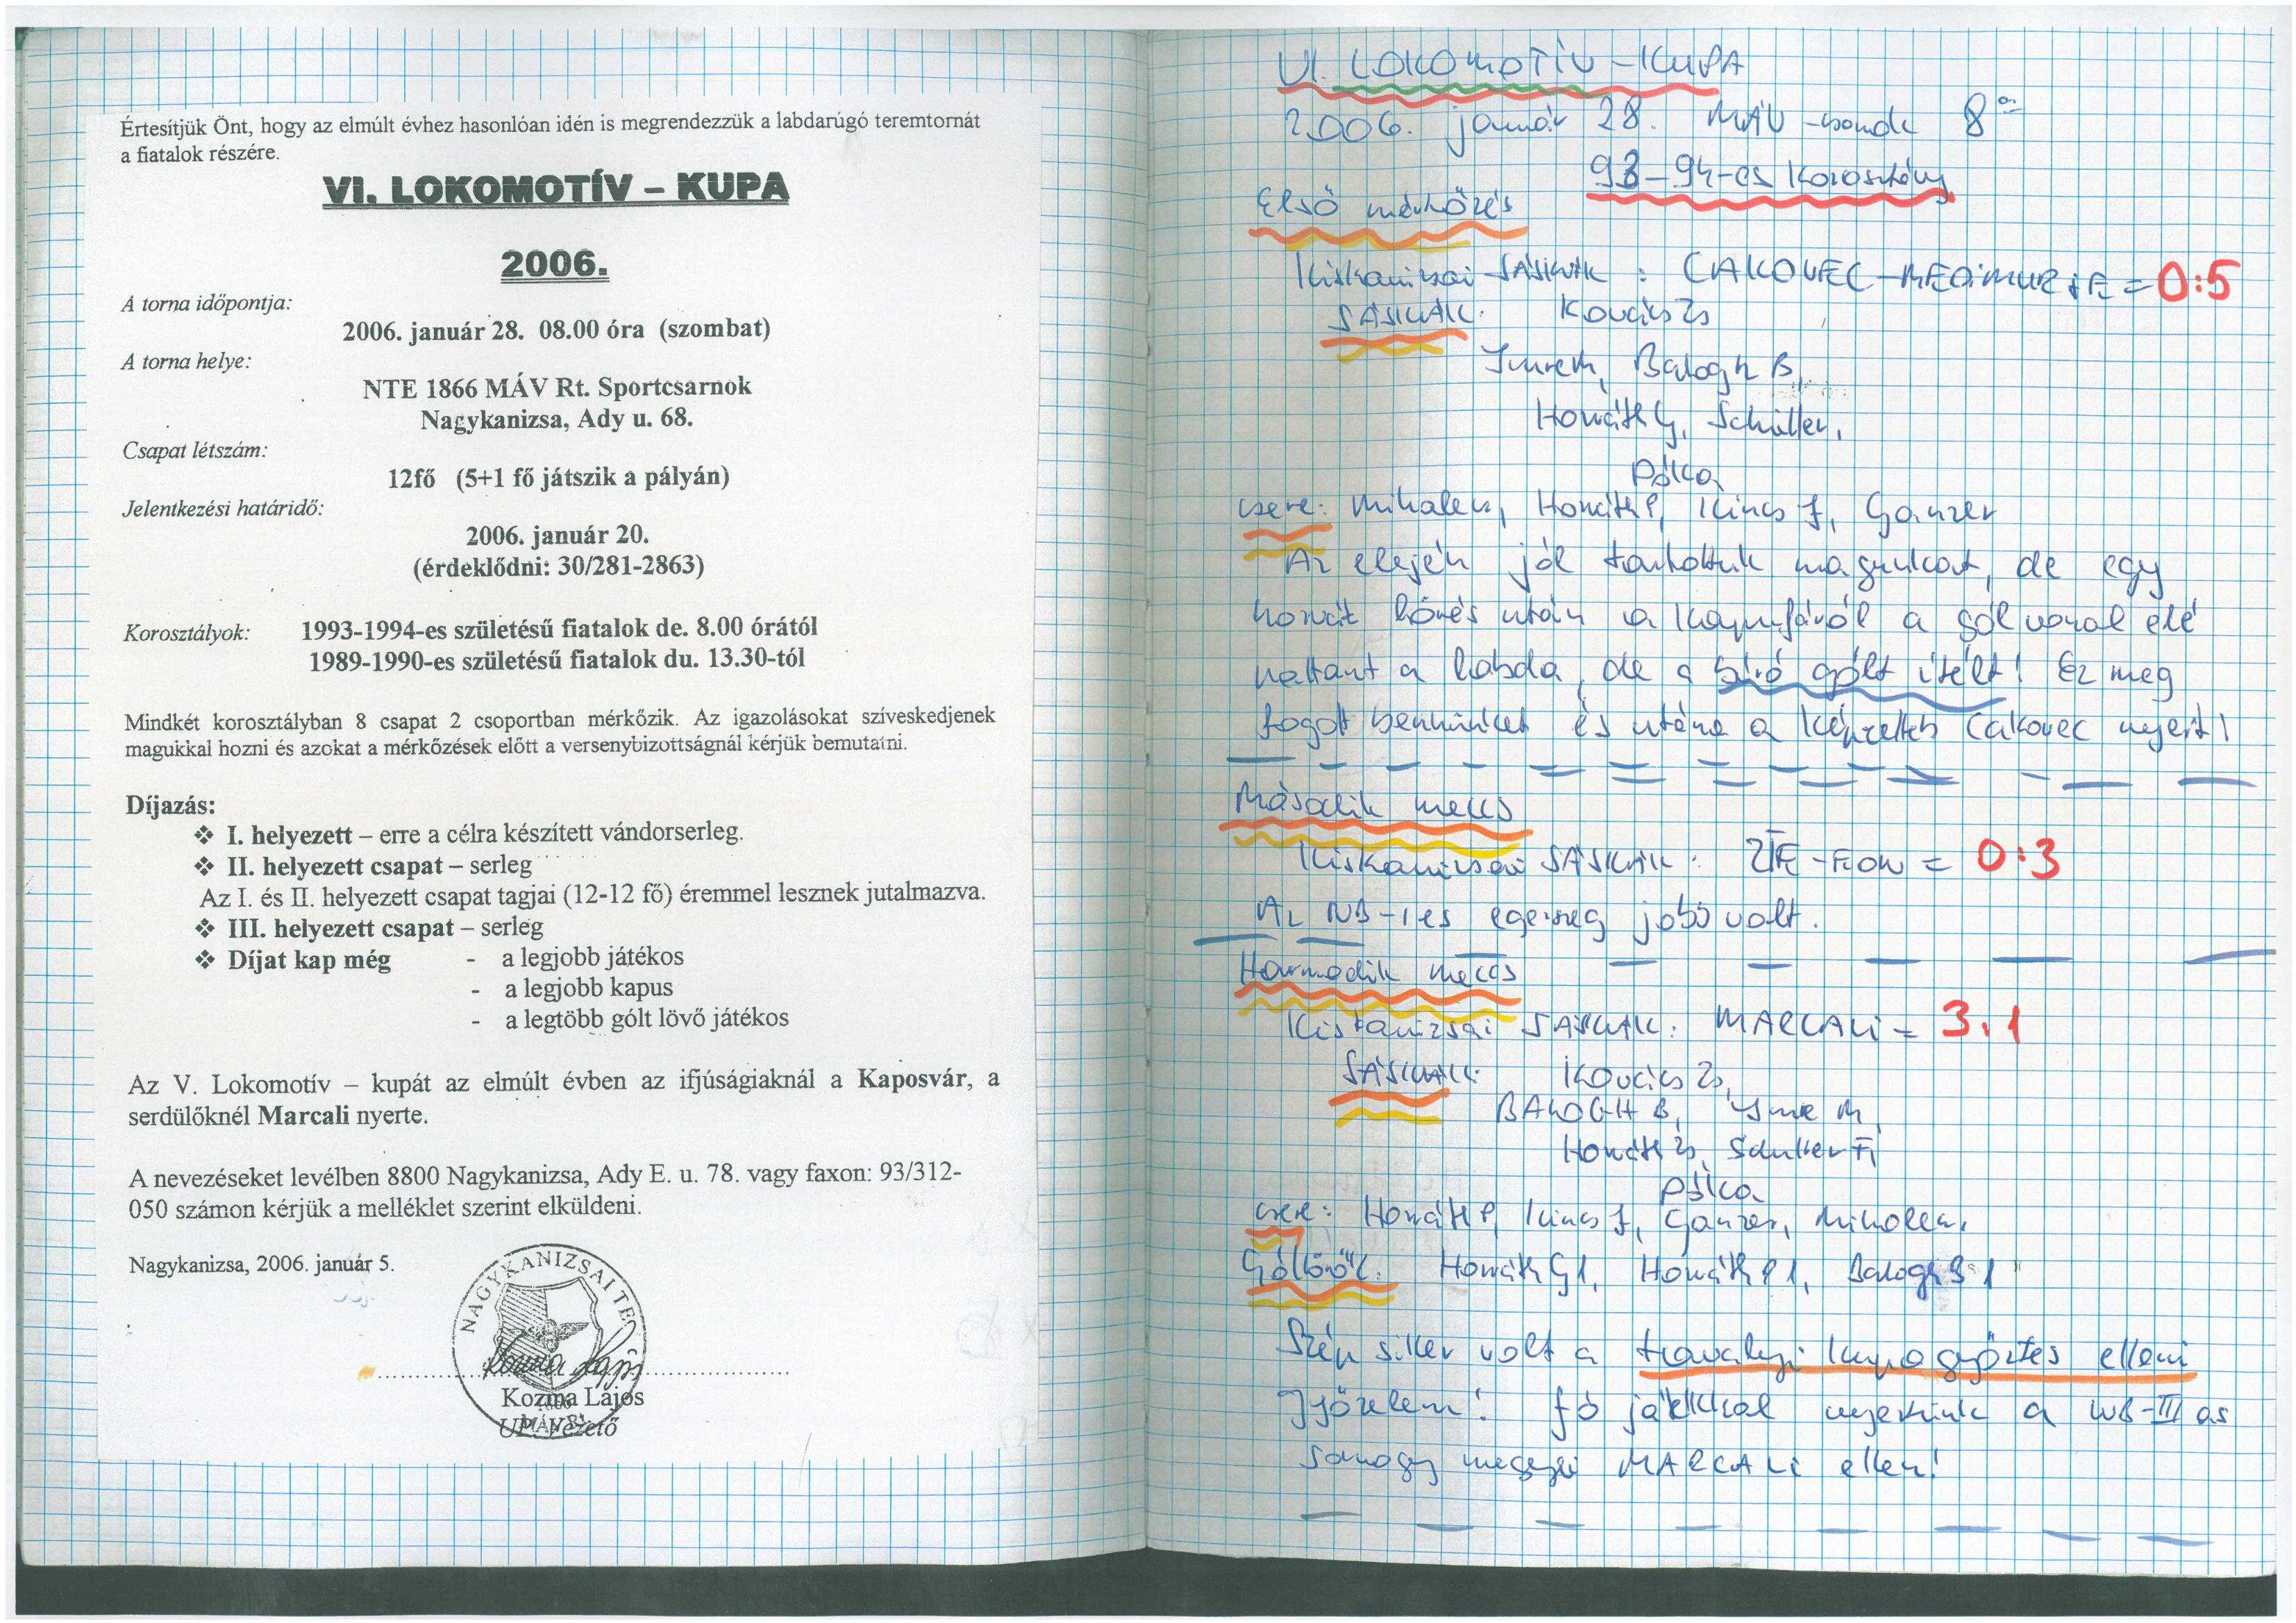 Értesítjük Önt, hogy az elmúlt évhez hasonlóan idén is megrendezzük a labdarúgó teremtornát
a fiatalok részére.
VI. LOKOMOTÍV – KUPA
2006.
A torna időpontja:
2006. január 28. 08.00 óra (szombat)
A torna helye:
NTE 1866 MÁV Rt. Sportcsarnok
Nagykanizsa, Ady u. 68.
Csapat létszám:
12fő (5+1 fő játszik a pályán)
Jelentkezési határidő:
2006. január 20.
(érdeklődni: 30/281-2863)
Korosztályok: 1993-1994-es születésű fiatalok de. 8.00 órától
1989-1990-es születésű fiatalok du. 13.30-tól
Mindkét korosztályban 8 csapat 2 csoportban mérkőzik. Az igazolásokat szíveskedjenek
magukkal hozni és azokat a mérkőzések előtt a versenybizottságnál kérjük bemutatni.
Díjazás:
❖ I. helyezett – erre a célra készített vándorserleg.
❖ II. helyezett csapat – serleg
Az I. és II. helyezett csapat tagjai (12-12 fő) éremmel lesznek jutalmazva.
❖ III. helyezett csapat – serleg
❖ Díjat kap még - a legjobb játékos
- a legjobb kapus
- a legtöbb gólt lövő játékos
Az V. Lokomotív – kupát az elmúlt évben az ifjúságiaknál a Kaposvár, a
serdülőknél Marcali nyerte.
A nevezéseket levélben 8800 Nagykanizsa, Ady E. u. 78. vagy faxon: 93/312-
050 számon kérjük a melléklet szerint elküldeni.
Nagykanizsa, 2006. január 5.
NAGYKANIZSAI TE
Kozma Lajos
vezető
VI. LOKOMOTÍV – KUPA
2006. január 28. MÁV-csarnok 8⁰⁰
93–94-es korosztály
Első mérkőzés
Kiskanizsai SÁSKÁK : CAKOVEC – MEDIMURJE = 0:5
SÁSKÁK: Kovács Zs
Imre M, Balogh B,
Horváth G, Schuller,
Pálka
csere: Mihalecz, Horváth P, Kincs J, Ganzer
Az elején jól tartottuk magunkat, de egy
horvát lövés után a kapufáról a gól vonal elé
pattant a labda, de a bíró gólt ítélt! Ez meg
fogott bennünket és utána a képzettebb Cakovec nyert!
Második meccs
Kiskanizsai SÁSKÁK : ZTE-EON = 0:3
Az NB-1 es egerszeg jobb volt.
Harmadik meccs
Kiskanizsai SÁSKÁK : MARCALI = 3:1
SÁSKÁK: Kovács Zs,
BALOGH B, Imre M,
Horváth Schuller F,
Pálka
csere: Horváth P, Kincs J, Ganzer, Mihalecz,
Góllövők: Horváth G 1, Horváth P 1, Balogh B 1
Szép siker volt a tavalyi kupagyőztes elleni
győzelem! Jó játékkal nyertünk a NB-III as
Somogy megyei MARCALI ellen!